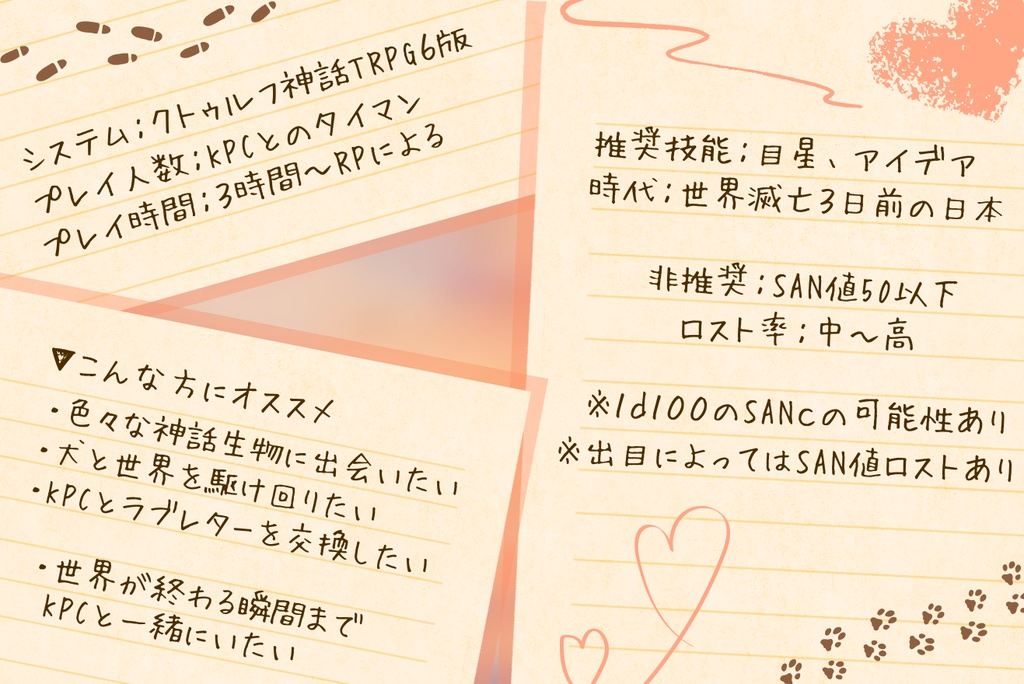 システム；クトゥルフ神話TRPG6版
プレイ人数；KPCとのタイマン
プレイ時間；3時間～RPによる
▼こんな方にオススメ
・色々な神話生物に出会いたい
・犬と世界を駆け回りたい
・KPCとラブレターを交換したい
・世界が終わる瞬間まで
KPCと一緒にいたい
推奨技能；目星、アイデア
時代；世界滅亡3日前の日本
非推奨；SAN値50以下
ロスト率；中～高
※1d100のSANcの可能性あり
※出目によってはSAN値ロストあり